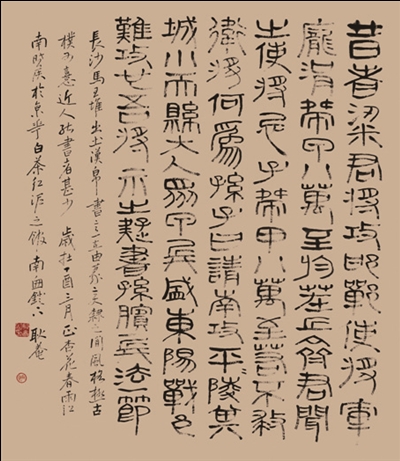 昔者梁君將攻邯鄲使將軍
龐涓帶甲八萬至於茬丘齊君聞
之使將忌子帶甲八萬至若不救
衛將何為孫子曰請南攻平陵其
城小而縣大人眾甲兵盛東陽戰邑
難攻也吾將示之疑書孫臏兵法一節
長沙馬王堆出土漢帛書之一在由篆之隸之間風格極古
樸少意近人能書者甚少 歲在丁酉三月正杏花春雨江
南時於東寧白茶紅泥之館 南西鐙下 耿菴